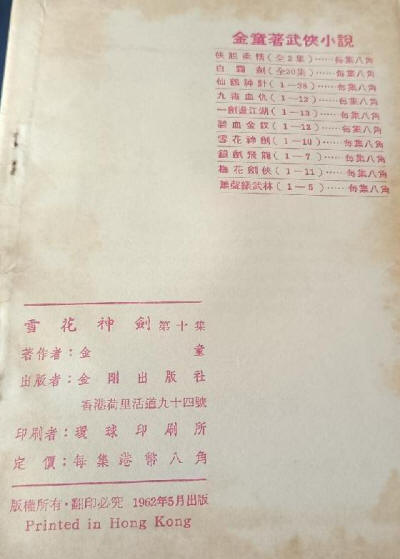 金童著武俠小說
俠胆柔情(全2集)……每集八角
白霜劍(全20集)……每集八角
仙鶴神針(1—28)……每集八角
九毒血仇(1—12)……每集八角
一劍盪江湖(1—13)……每集八角
碧血金釵(1—12)……每集八角
雪花神劍(1—10)……每集八角
銀劍飛龍(1—7)……每集八角
梅花劍俠(1—11)……每集八角
簫聲錄武林(1—5)……每集八角
雪花神劍 第十集
著作者:金童
出版者:金剛出版社
香港荷里活道九十四號
印刷者:環球印刷所
定價:每集港幣八角
版權所有·翻印必究 1962年5月出版
Printed in Hong Kong